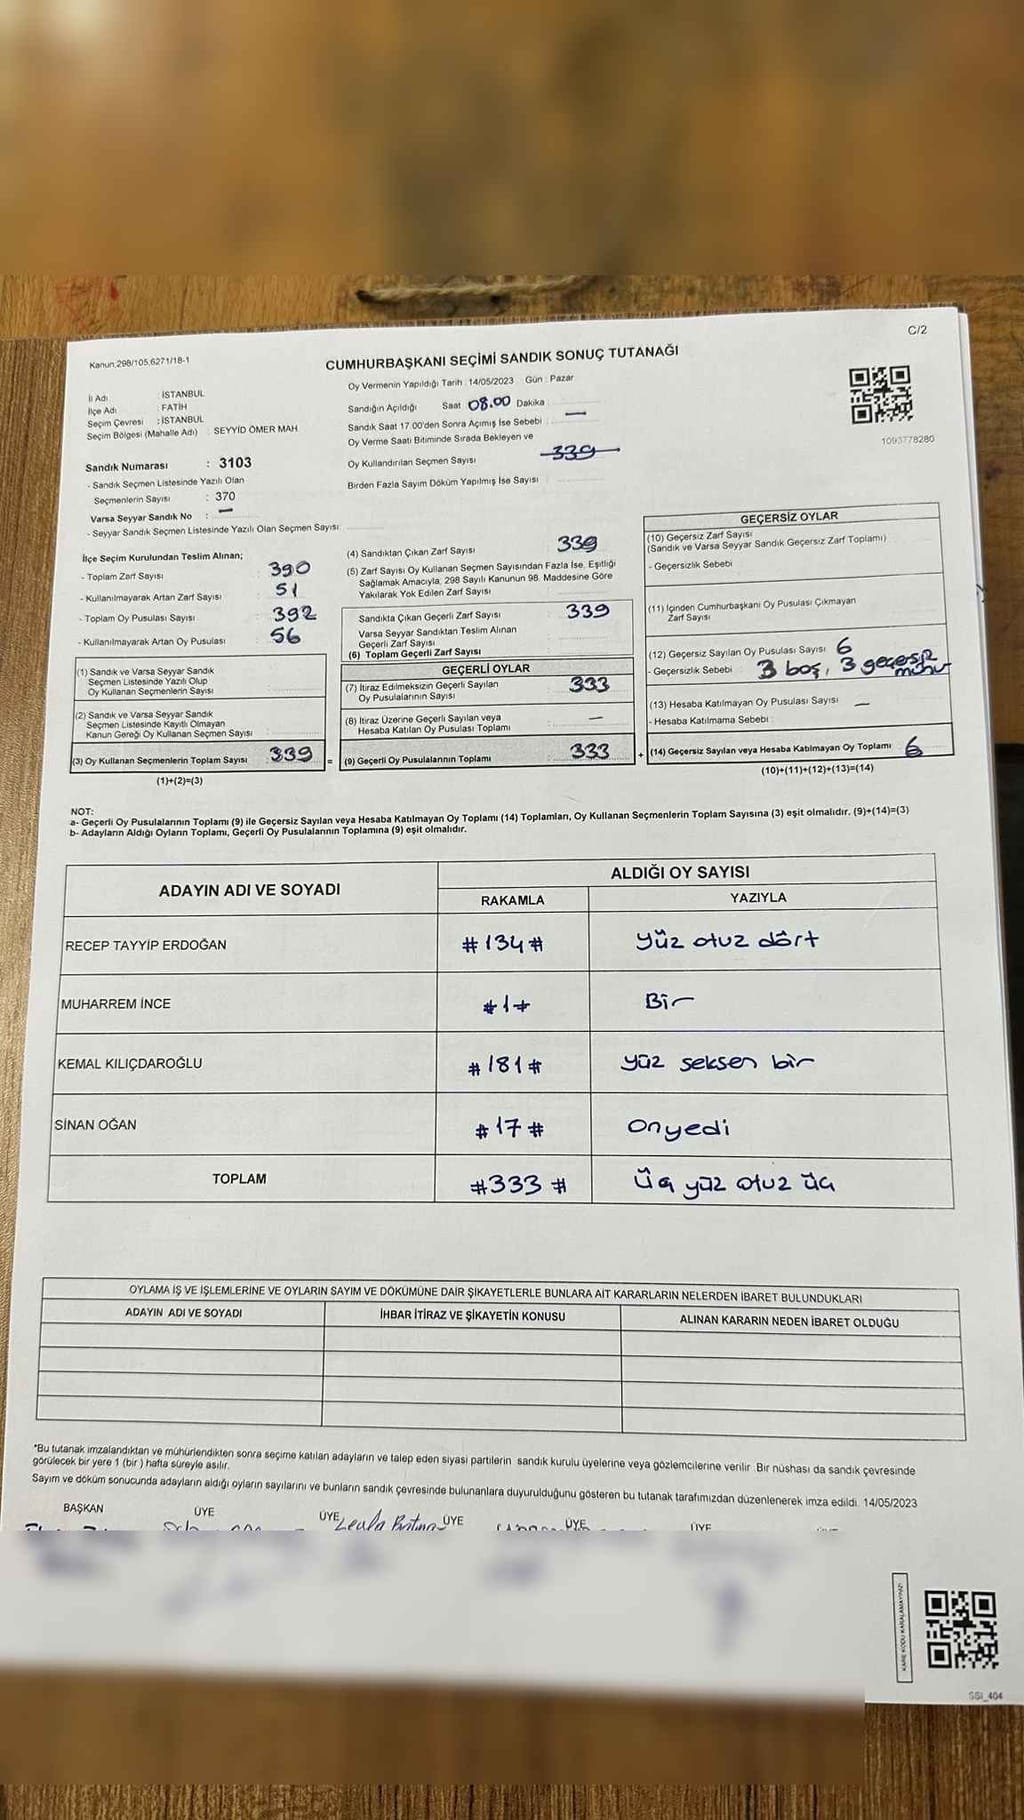 C/2
Kanun 298/105,6271/18-1
CUMHURBAŞKANI SEÇİMİ SANDIK SONUÇ TUTANAĞI
İl Adı : İSTANBUL
İlçe Adı : FATİH
Seçim Çevresi : İSTANBUL
Seçim Bölgesi (Mahalle Adı) SEYYİD ÖMER MAH
Sandık Numarası : 3103
- Sandık Seçmen Listesinde Yazılı Olan
Seçmenlerin Sayısı : 370
Varsa Seyyar Sandık No : —
- Seyyar Sandık Seçmen Listesinde Yazılı Olan Seçmen Sayısı
Oy Vermenin Yapıldığı Tarih : 14/05/2023 Gün : Pazar
Sandığın Açıldığı Saat 08.00 Dakika
Sandık Saat 17.00'den Sonra Açımış İse Sebebi —
Oy Verme Saati Bitiminde Sırada Bekleyen ve
Oy Kullandırılan Seçmen Sayısı 339
Birden Fazla Sayım Döküm Yapılmış İse Sayısı
1093778280
İlçe Seçim Kurulundan Teslim Alınan;
- Toplam Zarf Sayısı 390
- Kullanılmayarak Artan Zarf Sayısı 51
- Toplam Oy Pusulası Sayısı 392
- Kullanılmayarak Artan Oy Pusulası 56
(1) Sandık ve Varsa Seyyar Sandık
Seçmen Listesinde Yazılı Olup
Oy Kullanan Seçmenlerin Sayısı
(2) Sandık ve Varsa Seyyar Sandık
Seçmen Listesinde Kayıtlı Olmayan
Kanun Gereği Oy Kullanan Seçmen Sayısı
(3) Oy Kullanan Seçmenlerin Toplam Sayısı 339 =
(1)+(2)=(3)
(4) Sandıktan Çıkan Zarf Sayısı 339
(5) Zarf Sayısı Oy Kullanan Seçmen Sayısından Fazla İse, Eşitliği
Sağlamak Amacıyla, 298 Sayılı Kanunun 98. Maddesine Göre
Yakılarak Yok Edilen Zarf Sayısı
Sandıkta Çıkan Geçerli Zarf Sayısı 339
Varsa Seyyar Sandıktan Teslim Alınan
Geçerli Zarf Sayısı
(6) Toplam Geçerli Zarf Sayısı
GEÇERLİ OYLAR
(7) İtiraz Edilmeksizin Geçerli Sayılan
Oy Pusulalarının Sayısı 333
(8) İtiraz Üzerine Geçerli Sayılan veya
Hesaba Katılan Oy Pusulası Toplamı —
(9) Geçerli Oy Pusulalarının Toplamı 333 +
GEÇERSİZ OYLAR
(10) Geçersiz Zarf Sayısı
(Sandık ve Varsa Seyyar Sandık Geçersiz Zarf Toplamı)
- Geçersizlik Sebebi
(11) İçinden Cumhurbaşkanı Oy Pusulası Çıkmayan
Zarf Sayısı
(12) Geçersiz Sayılan Oy Pusulası Sayısı 6
- Geçersizlik Sebebi 3 boş, 3 geçersiz
mühür
(13) Hesaba Katılmayan Oy Pusulası Sayısı —
- Hesaba Katılmama Sebebi
(14) Geçersiz Sayılan veya Hesaba Katılmayan Oy Toplamı 6
(10)+(11)+(12)+(13)=(14)
NOT:
a- Geçerli Oy Pusulalarının Toplamı (9) ile Geçersiz Sayılan veya Hesaba Katılmayan Oy Toplamı (14) Toplamları, Oy Kullanan Seçmenlerin Toplam Sayısına (3) eşit olmalıdır. (9)+(14)=(3)
b- Adayların Aldığı Oyların Toplamı, Geçerli Oy Pusulalarının Toplamına (9) eşit olmalıdır.
ADAYIN ADI VE SOYADI
ALDIĞI OY SAYISI
RAKAMLA YAZIYLA
RECEP TAYYİP ERDOĞAN #134# Yüz otuz dört
MUHARREM İNCE #1# Bir
KEMAL KILIÇDAROĞLU #181# yüz seksen bir
SİNAN OĞAN #17# onyedi
TOPLAM #333# üç yüz otuz üç
OYLAMA İŞ VE İŞLEMLERİNE VE OYLARIN SAYIM VE DÖKÜMÜNE DAİR ŞİKAYETLERLE BUNLARA AİT KARARLARIN NELERDEN İBARET BULUNDUKLARI
ADAYIN ADI VE SOYADI İHBAR İTİRAZ VE ŞİKAYETİN KONUSU ALINAN KARARIN NEDEN İBARET OLDUĞU
*Bu tutanak imzalandıktan ve mühürlendikten sonra seçime katılan adayların ve talep eden siyasi partilerin sandık kurulu üyelerine veya gözlemcilerine verilir. Bir nüshası da sandık çevresinde
görülecek bir yere 1 (bir ) hafta süreyle asılır.
Sayım ve döküm sonucunda adayların aldığı oyların sayılarını ve bunların sandık çevresinde bulunanlara duyurulduğunu gösteren bu tutanak tarafımızdan düzenlenerek imza edildi. 14/05/2023
BAŞKAN ÜYE ÜYE ÜYE ÜYE ÜYE
KARE KODU KARALAMAYINIZ!
SSI_404